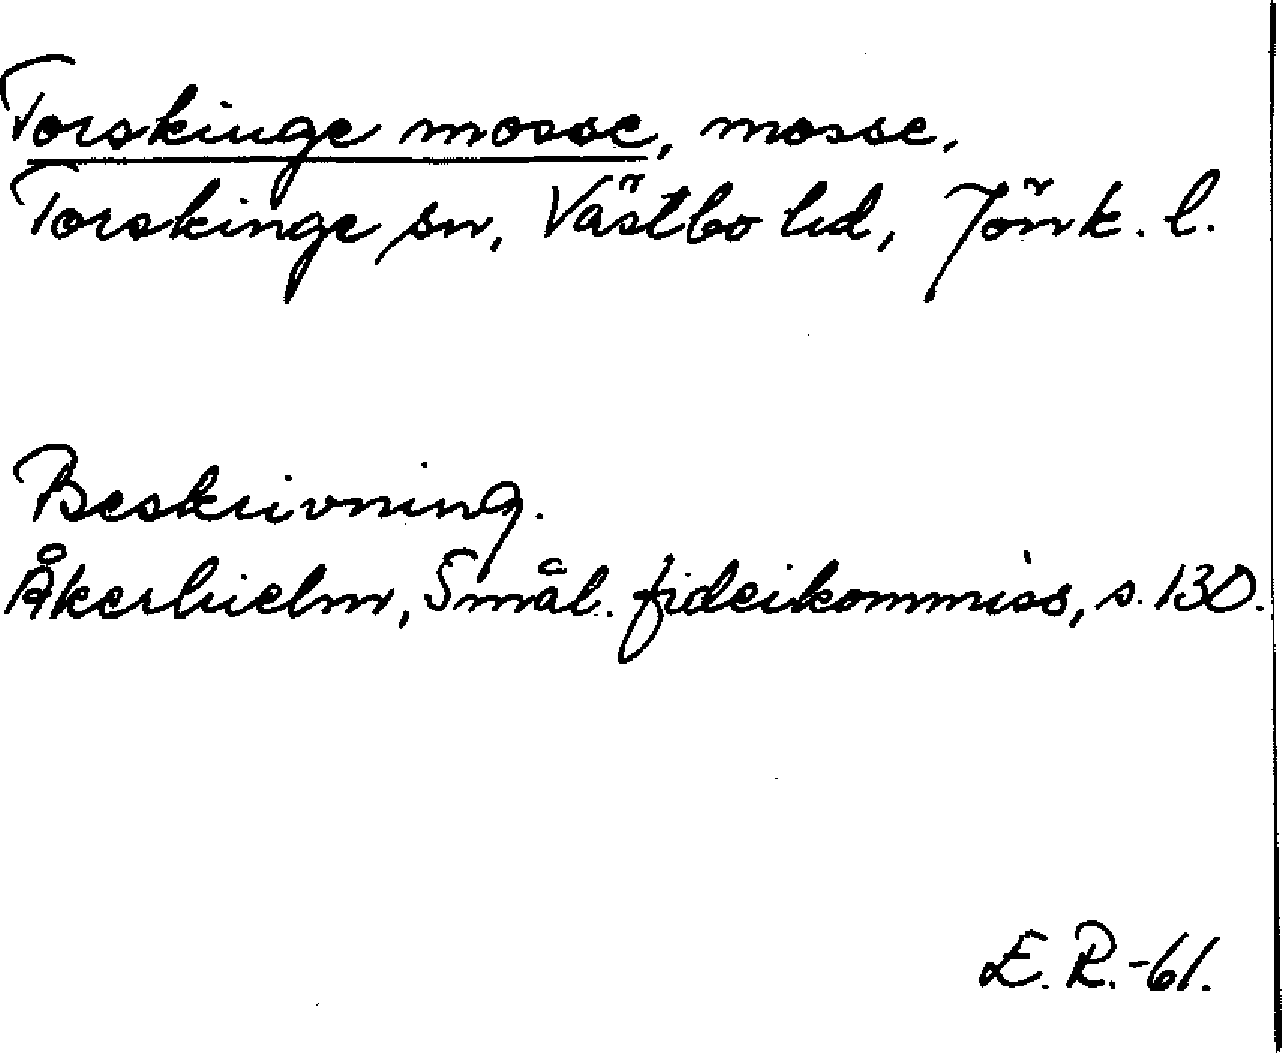 Torskinge mosse, mosse,
Torskinge sn, Västbo hd, Jönk. l.
Beskrivning.
Åkerhielm, Smål. fideikommiss, s. 130.
E. R. -61.